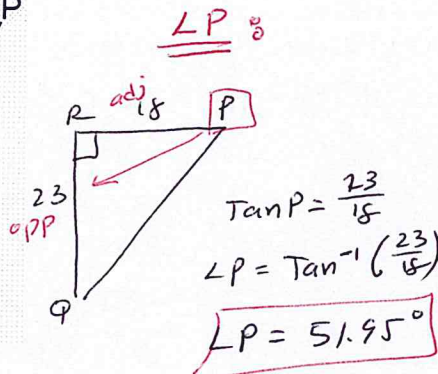 P
∠P :
R adj 18 P
23
opp
Q
Tan P = 23/18
∠P = Tan⁻¹ (23/18)
∠P = 51.95°